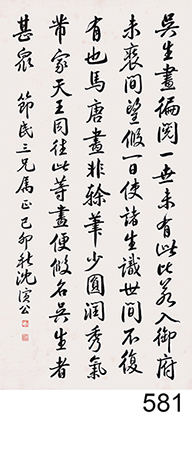 吴生畫徧閱一世未有此比君入御府
未裝间望假一日使諸生識世间不復
有也馬唐畫非餘筆少圓润秀氣
常家天王同往此等畫便假名吴生者
甚衆
節民三兄属正己卯秋沈寐公
581